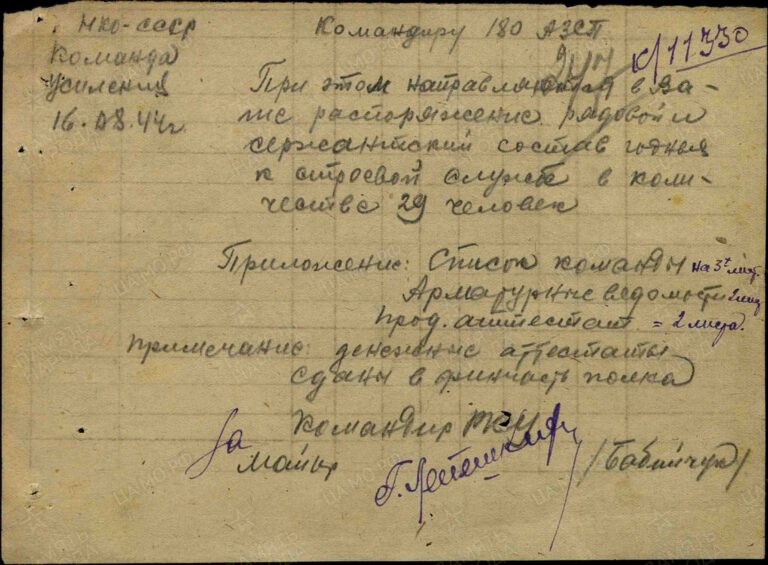 НКО-СССР
Команда
Усиления
16.08.44г.
Командиру 180 АЗСП
К/11330
При этом направляются в ва-
ше распоряжение рядовой и
сержантский состав годных
к строевой службе в коли-
честве 29 человек
Приложение: Список команды на 3х лист.
Арматурные ведомости 2 лис
Прод. аттестат = 2 листа.
Примечание: денежные аттестаты
сданы в финчасть полка
Командир
За майор
/Бабийчук/